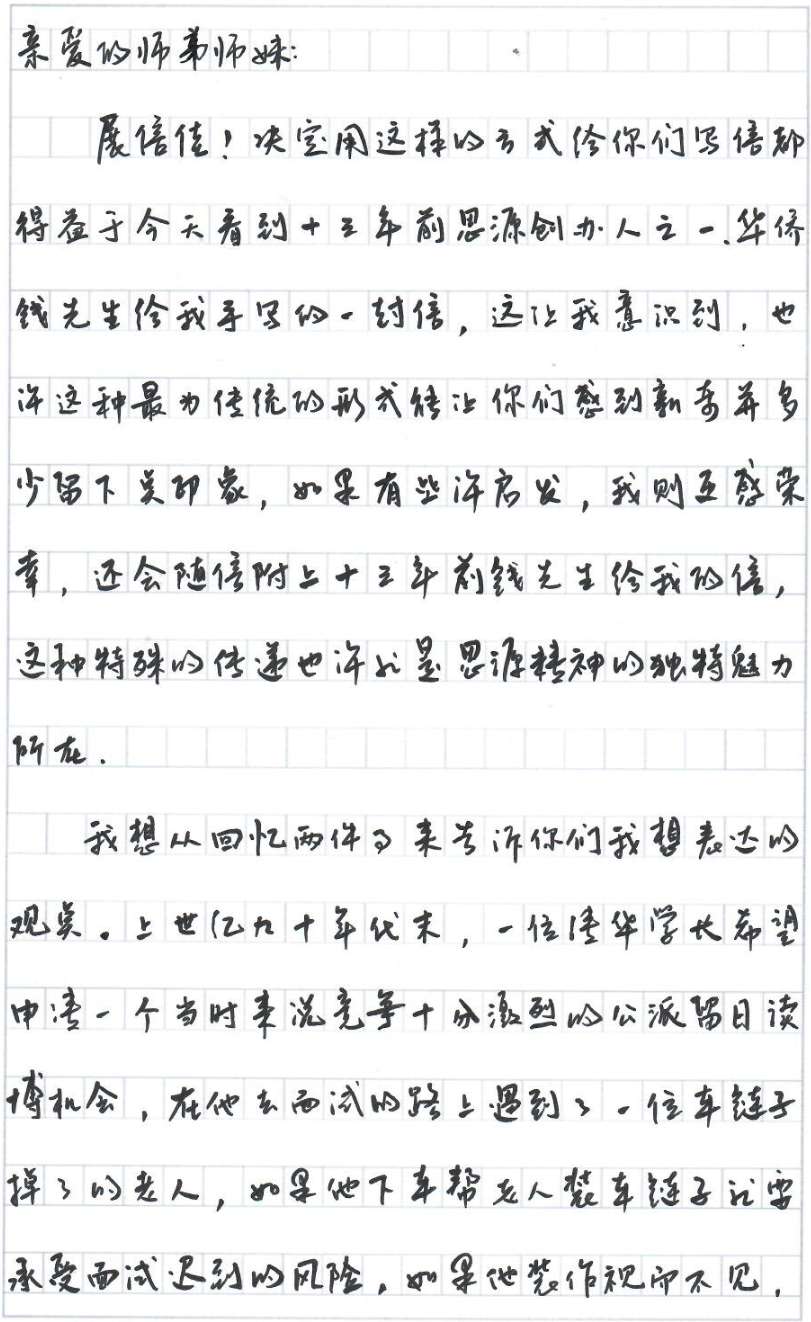 亲爱的师弟师妹:
展信佳！决定用这样的方式给你们写信都
得益于今天看到十三年前思源创办人之一、华侨
钱先生给我手写的一封信，这让我意识到，也
许这种最为传统的形式能让你们感到新奇并多
少留下点印象，如果有些许启发，我则互感荣
幸，还会随信附上十三年前钱先生给我的信，
这种特殊的传递也许就是思源精神的独特魅力
所在.
我想从回忆两件事来告诉你们我想表达的
观点。上世纪九十年代末，一位清华学长希望
申请一个当时来说竞争十分激烈的公派留日读
博机会，在他去面试的路上遇到了一位车链子
掉了的老人，如果他下车帮老人装车链子就要
承受面试迟到的风险，如果他装作视而不见，